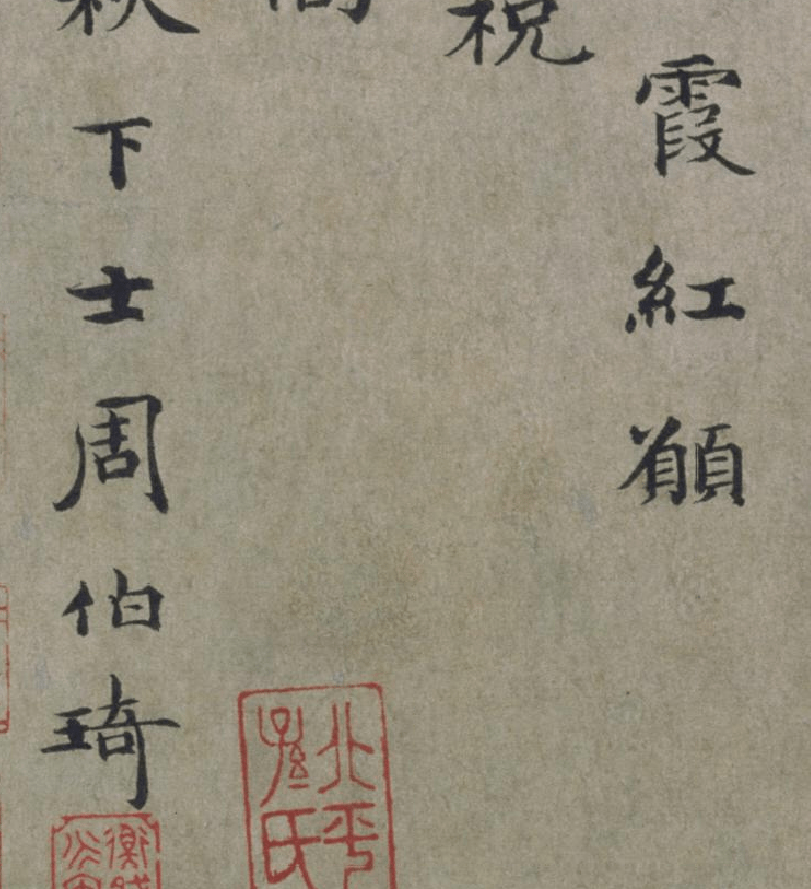 霞紅願
祝
下士周伯琦
北平孫氏